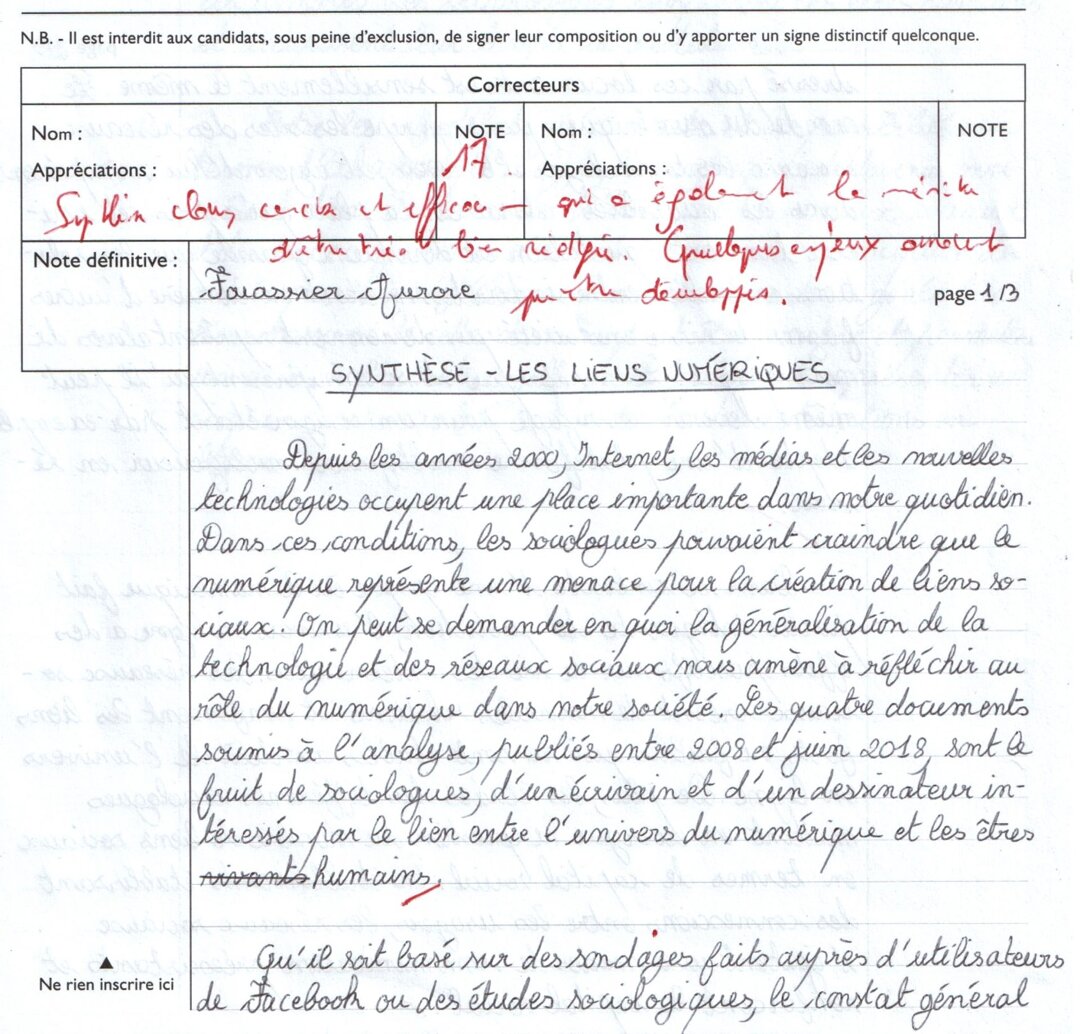 N.B. - Il est interdit aux candidats, sous peine d'exclusion, de signer leur composition ou d'y apporter un signe distinctif quelconque.
Correcteurs
Nom :
NOTE
Nom :
NOTE
Appréciations :
17
Appréciations :
claire et efficace qui a également le mérite
d'être très bien rédigée. Quelques enjeux auraient
Note définitive :
Fouassier Aurore
pu être développés
page 1/3
SYNTHÈSE - LES LIENS NUMÉRIQUES
Depuis les années 2000, Internet, les médias et les nouvelles
technologies occupent une place importante dans notre quotidien.
Dans ces conditions, les sociologues pouvaient craindre que le
numérique représente une menace pour la création de liens so-
ciaux. On peut se demander en quoi la généralisation de la
technologie et des réseaux sociaux nous amène à réfléchir au
rôle du numérique dans notre société. Les quatre documents
soumis à l'analyse, publiés entre 2008 et juin 2018, sont le
fruit de sociologues, d'un écrivain et d'un dessinateur in-
téressés par le lien entre l'univers du numérique et les êtres
vivants humains.
Qu'il soit basé sur des sondages faits auprès d'utilisateurs
Ne rien inscrire ici
de Facebook ou des études sociologiques, le constat général